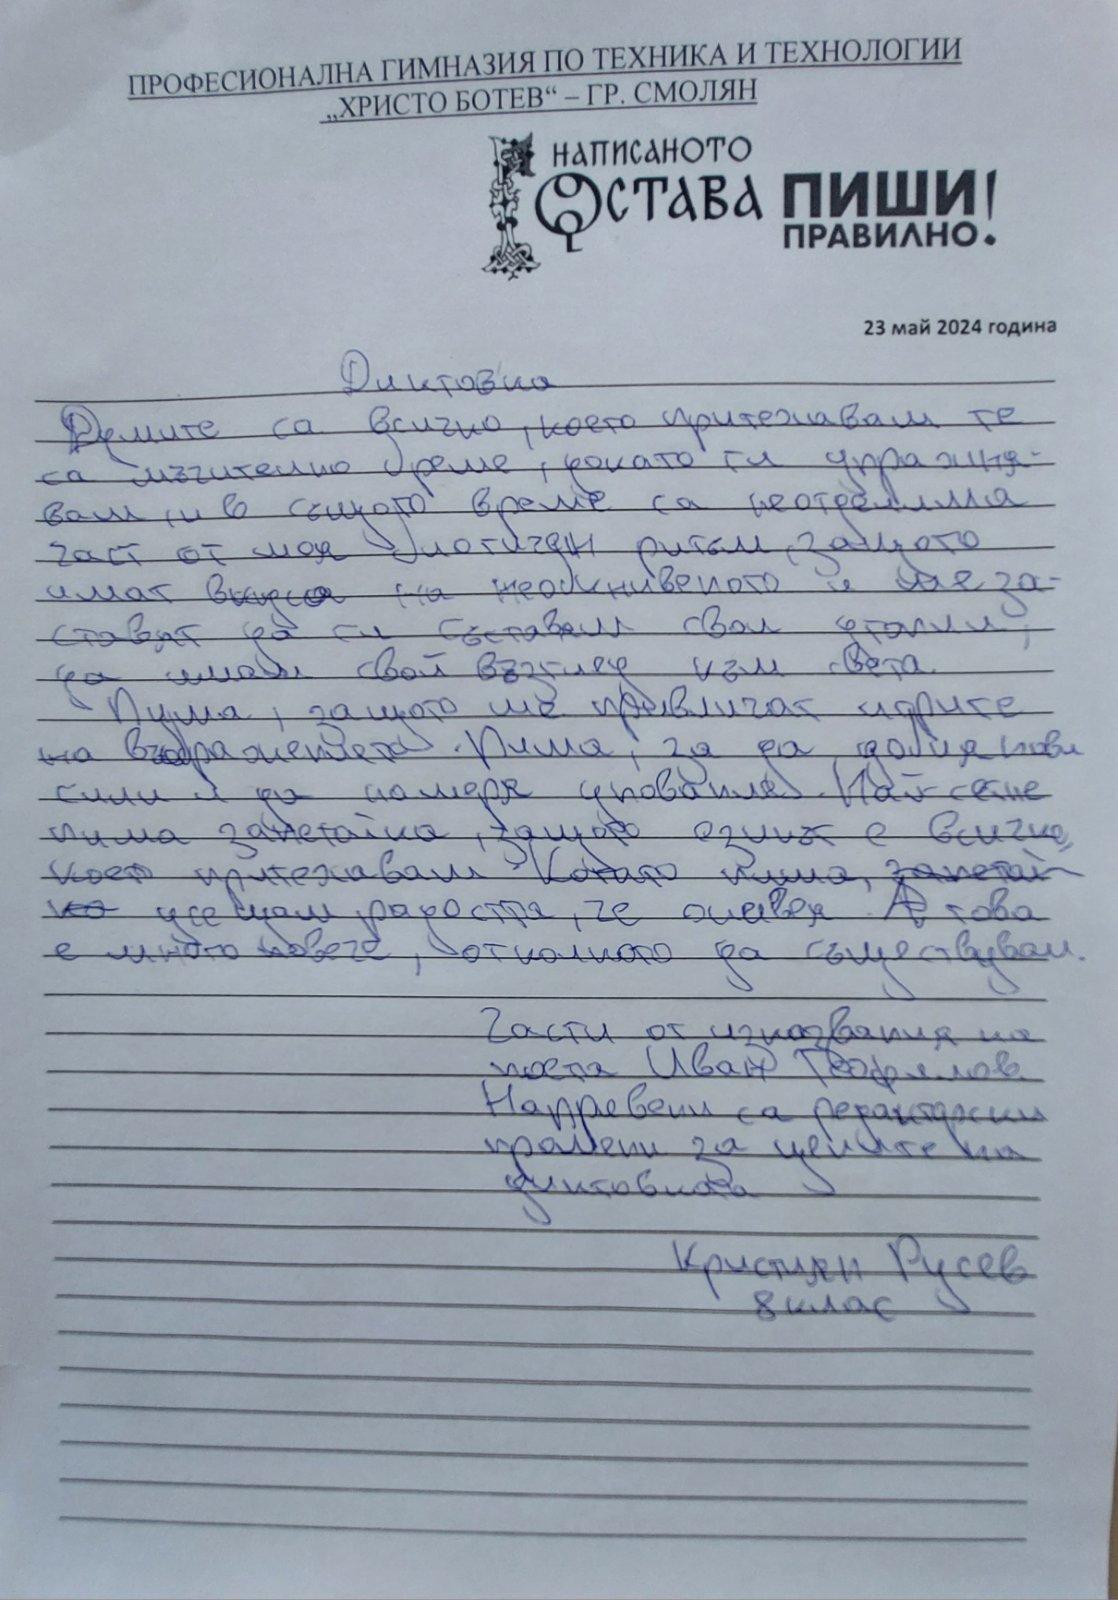 ПРОФЕСИОНАЛНА ГИМНАЗИЯ ПО ТЕХНИКА И ТЕХНОЛОГИИ
„ХРИСТО БОТЕВ“ – ГР. СМОЛЯН
НАПИСАНОТО
ОСТАВА ПИШИ
ПРАВИЛНО!
23 май 2024 година
Диктовка
Думите са всичко, което притежавам те
са мъчително време, докато ги упражня-
вам, и в същото време са неотделима
част от моя биологичен ритъм, защото
имат вкуса на неоткнивеното и ме за-
ставят да ги съставям свои
да имам свой възглед към света.
Пиша, защото ме привличат игрите
на въображението. Пиша, за да добия нови
сили и да намеря упование. Най-сетне
пиша занетайка, защото езикът е всичко,
което притежавам Когато пиша, занетай-
ка усещам радостта, че оживея. А това
е много повече, отколкото да съществувам.
Части от изказвания на
поета Иван Теофилов
Направени са редакторски
промени за целите на
диктовката
Кристиян Русев
8 клас